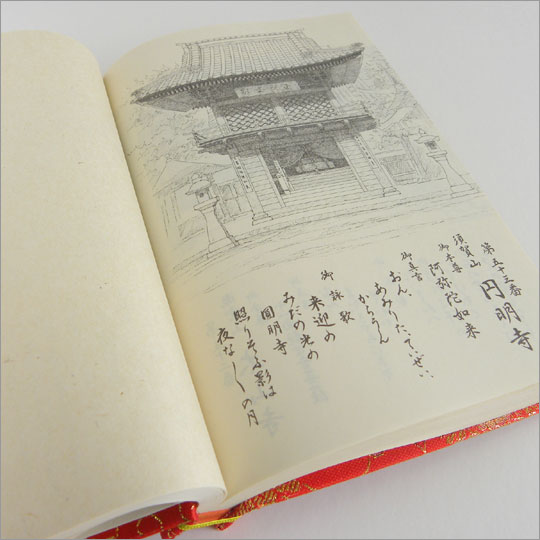 第五十三番
円明寺
須賀山
御本尊
阿弥陀如来
御真言
おん、
あみりた、ていぜい、
からうん
御詠歌
来迎の
みだの光の
圓明寺
照りそふ影は
夜な〱の月